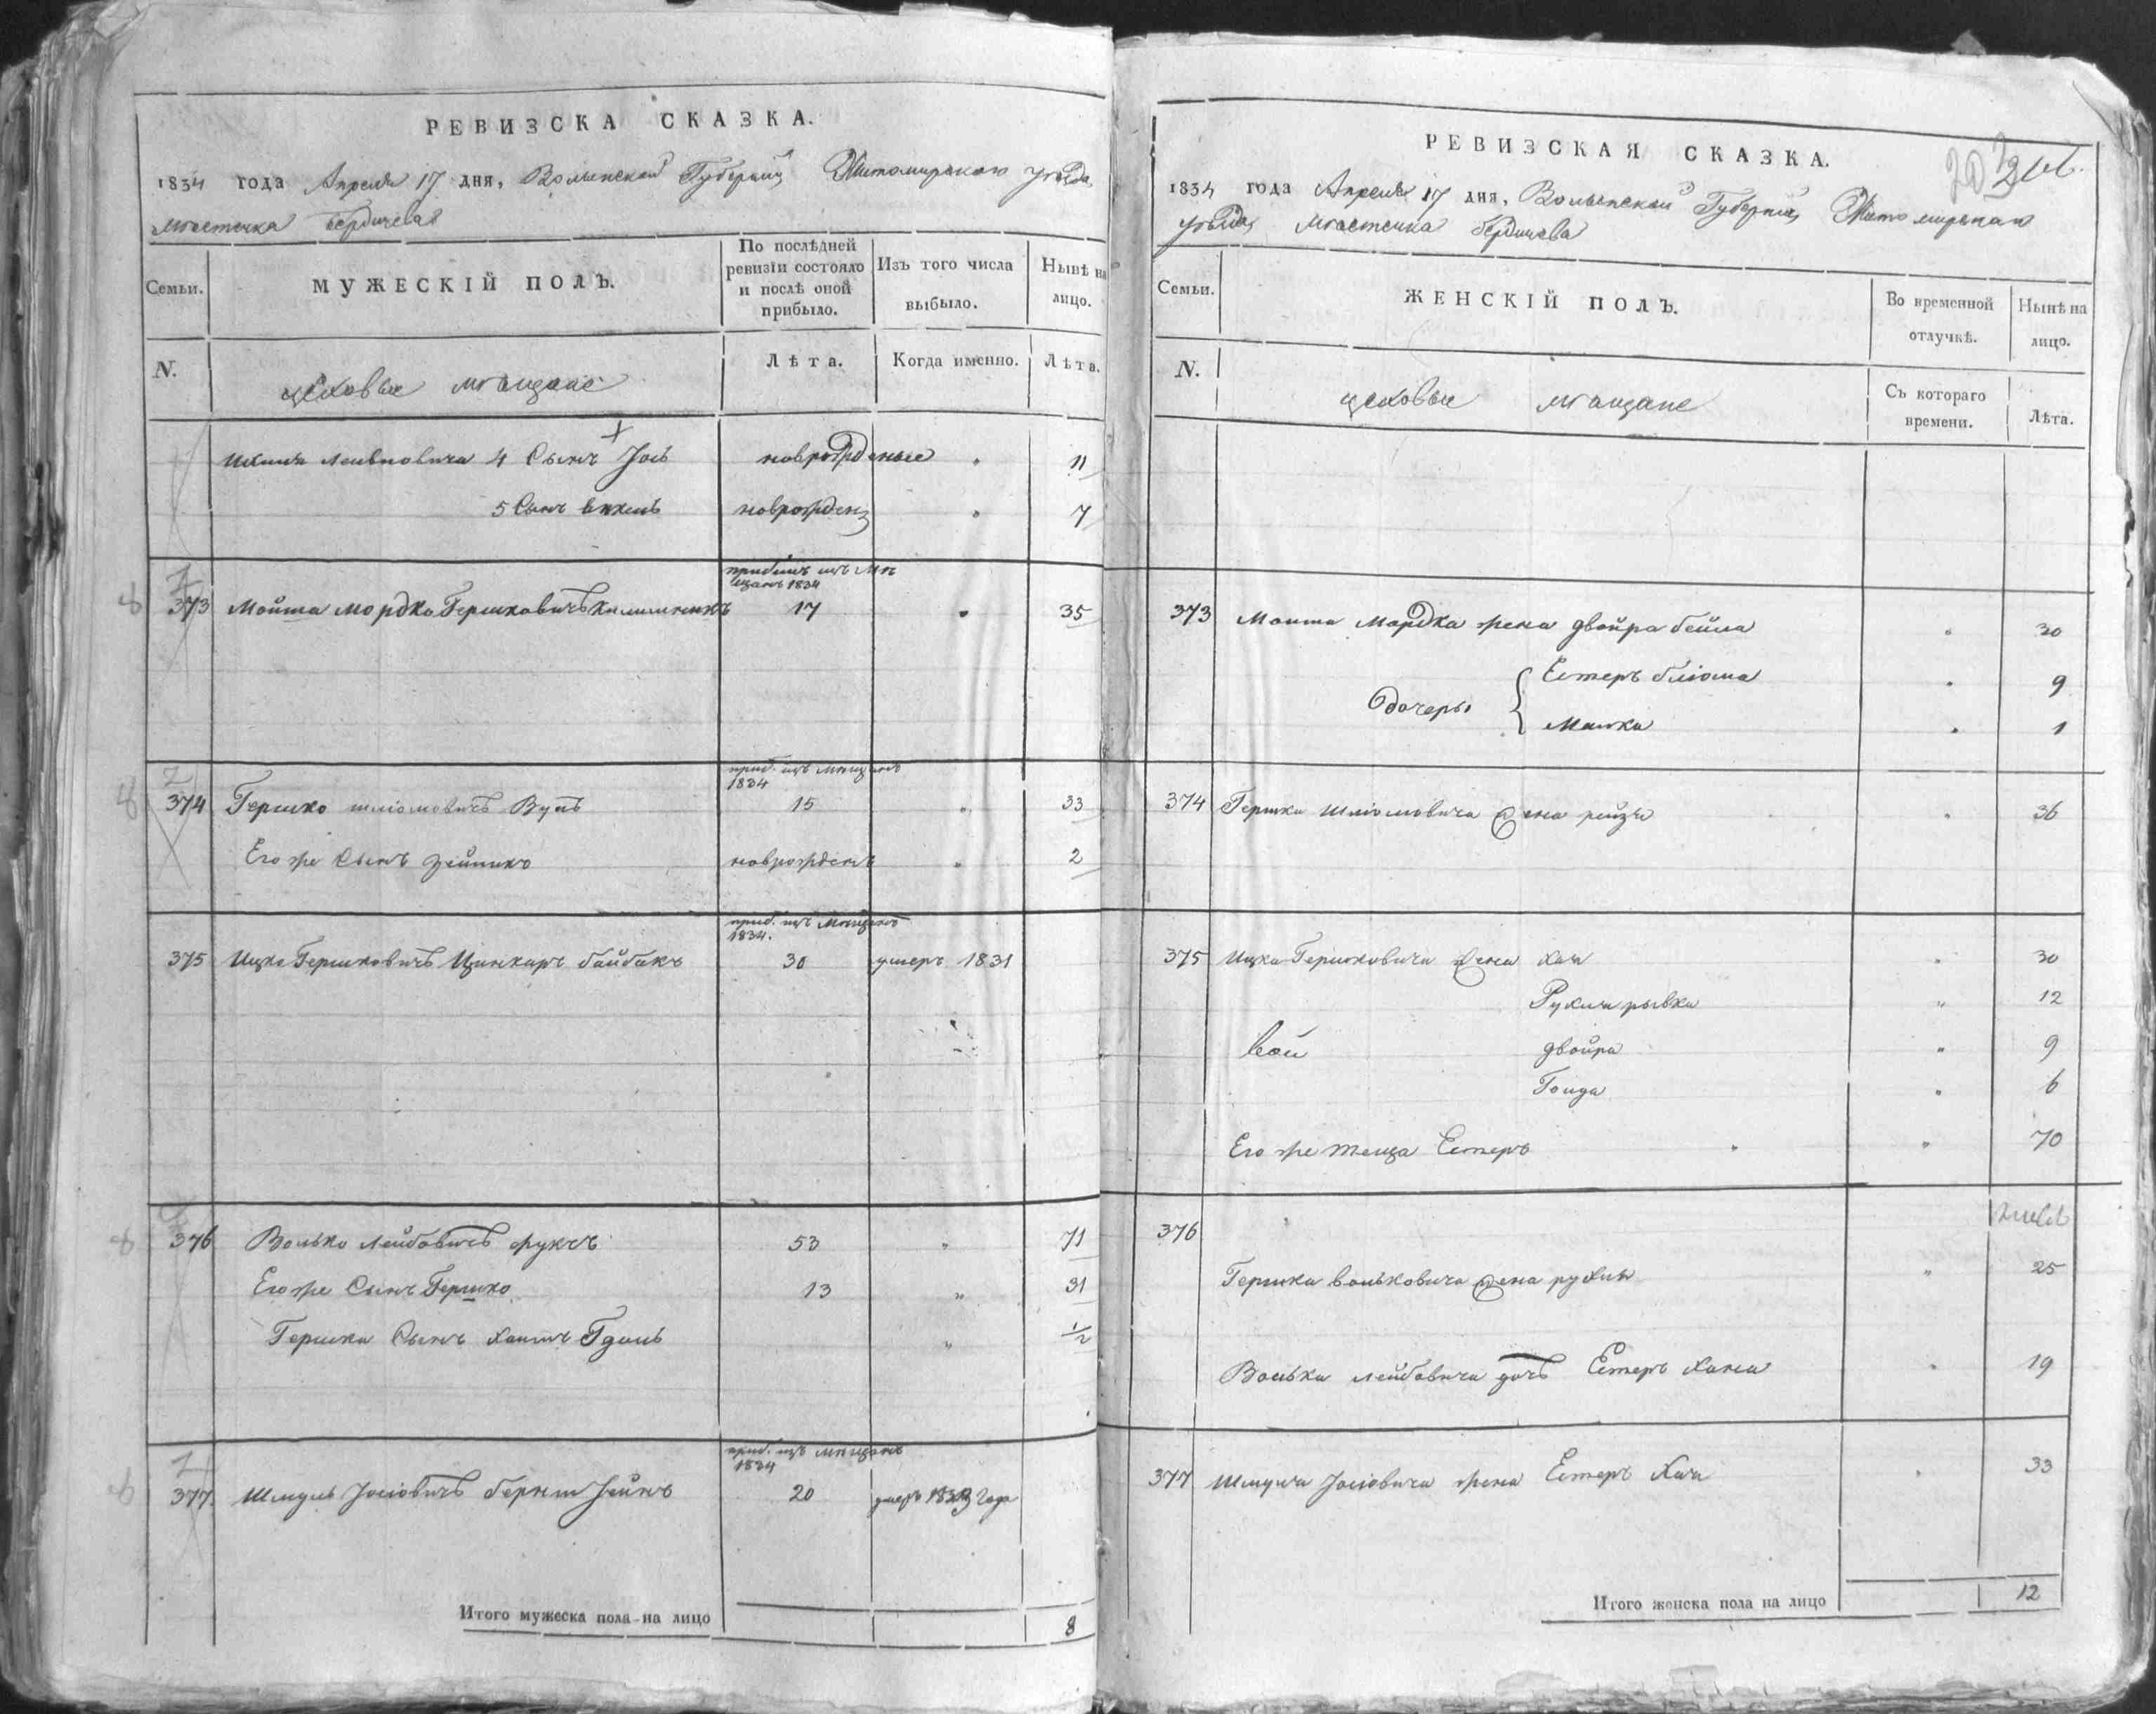 РЕВИЗСКА СКАЗКА.
1834 года Апреля 17 дня, Волынской Губерніи Житомирскаго уезда
местечка Бердичева
Семьи.
МУЖЕСКІЙ ПОЛЪ.
По послѣдней ревизіи состояло и послѣ оной прибыло.
Изъ того числа выбыло.
Нынѣ на лицо.
N.
цеховые мещане
Лѣта.
Когда именно.
Лѣта.
Лейвиовича 4 Сынъ Іось новрожденые 11
5 Сынъ новрожден 7
прибылъ изъ Мещанъ 1834
373 Мойша Мордко Гершковичъ 17 35
приб. изъ мещанъ 1834
374 Гершко Шліомовичъ 15 33
Его же Сынъ Зейликъ новрожденъ 2
приб. изъ мещанъ 1834.
375 Ицко Гершковичъ Цинкаръ байбакъ 30 умеръ 1831
376 Волько Лейбовичъ 53 71
Его же Сынъ Гершко 13 31
Гершка Сынъ Хаимъ Гдаль 1/2
приб. изъ мещанъ 1834
377. Шмуль Іосіовичъ 20 умеръ года
Итого мужеска пола на лицо 8
РЕВИЗСКАЯ СКАЗКА.
1834 года Апреля 17 дня, Волынской Губерніи Житомирскаго
уезда местечка Бердичева
Семьи.
ЖЕНСКІЙ ПОЛЪ.
Во временной отлучкѣ.
Нынѣ на лицо.
N.
цеховые мещане
Съ котораго времени.
Лѣта.
373 Моиша Мордка жена двойра бейла 30
дочеры { Естеръ бліома 9
Малка 1
374 Гершка Шліомовича жена рейзя 36
375 Ицка Гершковича жена Хая 30
Рухля рывка 12
двойра 9
6
Его же теща Естеръ 70
376
Гершка Вольковича жена рухля 25
Волька Лейбовича дочь Естеръ Хана 19
377 Шмуля Іосіовича жена Естеръ Хая 33
Итого женска пола на лицо 12